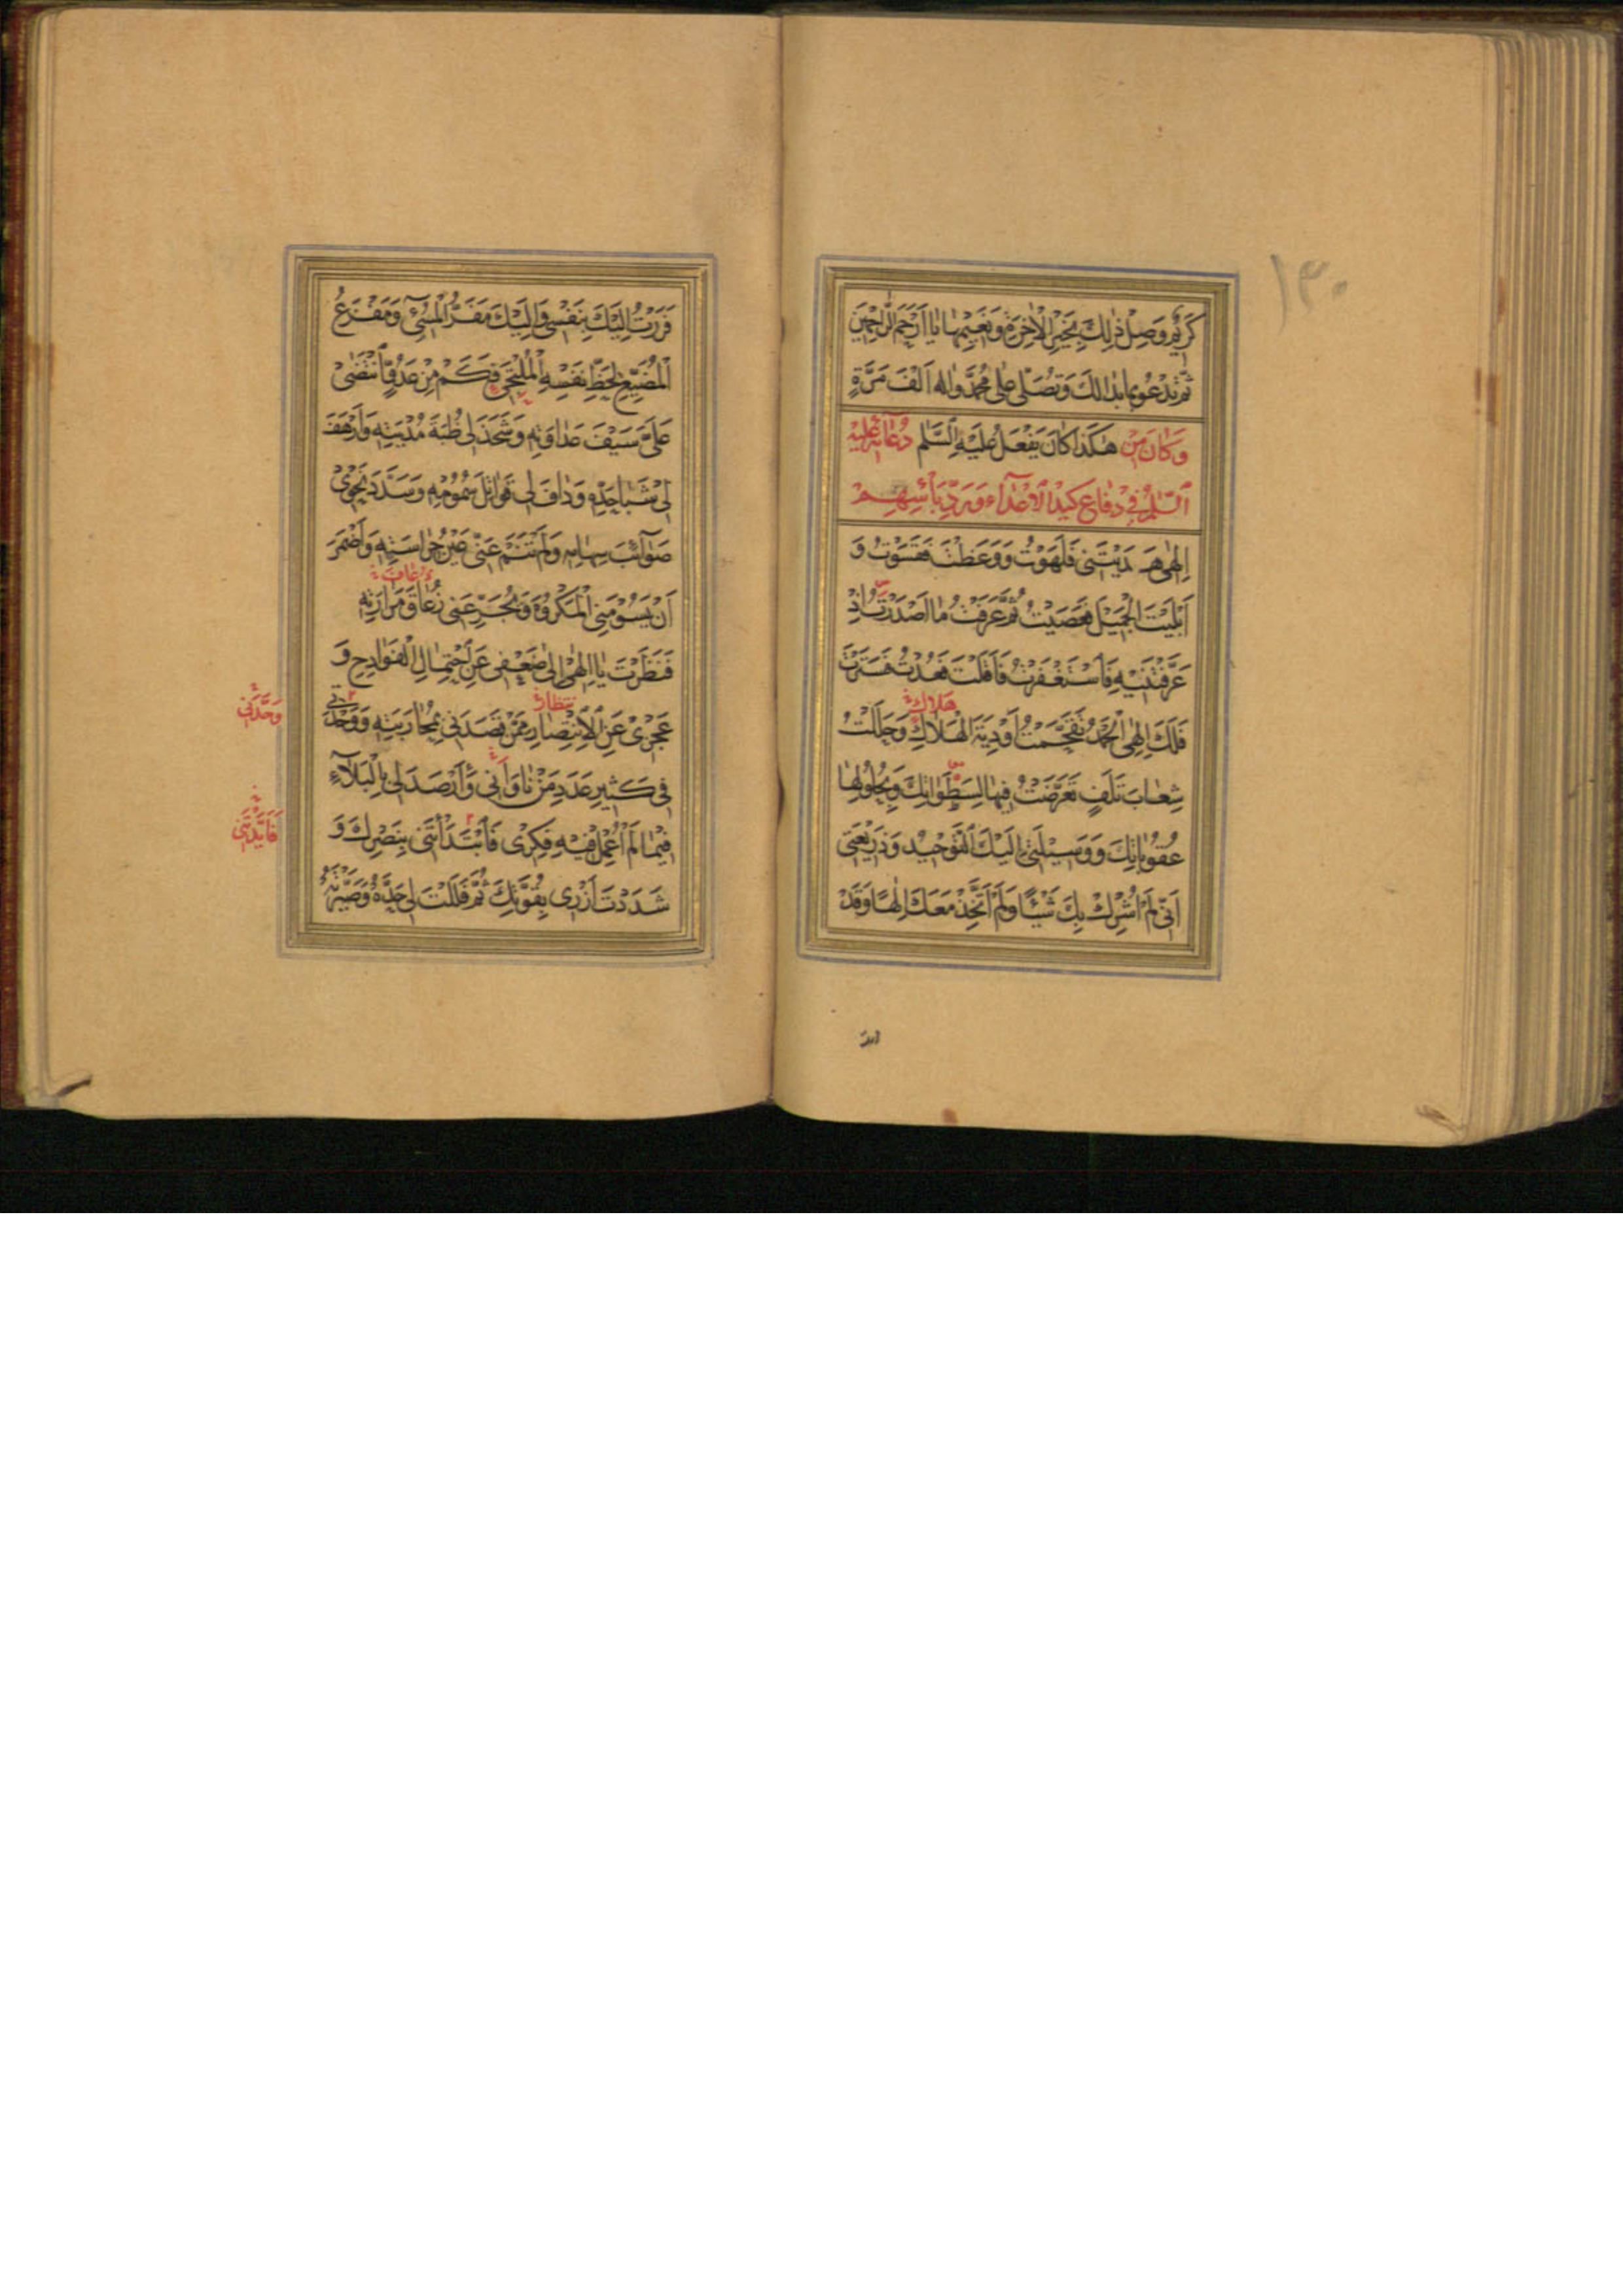 ١٣٠
كَرِيمٌ وَصِلْ ذٰلِكَ بِخَيْرِ الْاٰخِرَةِ وَنَعِيمِهَا يَا اَرْحَمَ الرَّاحِمِينَ
ثُمَّ تَدْعُو بِمَا بَدَا لَكَ وَتُصَلِّى عَلٰى مُحَمَّدٍ وَاٰلِهِ اَلْفَ مَرَّةٍ
وَكَانَ مِنْ هٰكَذَا كَانَ يَفْعَلُ عَلَيْهِ السَّلَام دُعَائِهِ عَلَيْهِ
السَّلَامُ فِي دِفَاعِ كَيْدِ الْاَعْدَاۤءِ وَرَدِّ بَأْسِهِمْ
اِلٰهِى هَدَيْتَنِى فَلَهَوْتُ وَوَعَظْتَ فَقَسَوْتُ وَ
اَبْلَيْتَ الْجَمِيلَ فَعَصَيْتُ ثُمَّ عَرَفْتُ مَا اَصْدَرْتَ اِذْ
عَرَّفْتَنِيهِ فَاسْتَغْفَرْتُ فَاَقَلْتَ فَعُدْتُ فَسَتَرْتَ
هَلَاك
فَلَكَ اِلٰهِى الْحَمْدُ تَقَحَّمْتُ اَوْدِيَةَ الْهَلَاكِ وَحَلَلْتُ
شِعَابَ تَلَفٍ تَعَرَّضْتُ فِيهَا لِسَطَوَاتِكَ وَبِحُلُولِهَا
عُقُوبَاتِكَ وَوَسِيلَتِى اِلَيْكَ التَّوْحِيدُ وَذَرِيعَتِى
اَنِّى لَمْ اُشْرِكْ بِكَ شَيْئًا وَلَمْ اَتَّخِذْ مَعَكَ اِلٰهًا وَقَدْ
فَرَرْتُ اِلَيْكَ بِنَفْسِى وَاِلَيْكَ مَفَرُّ الْمُسِىۤءِ وَمَفْزَعُ
الْمُضَيِّعِ لِحَظِّ نَفْسِهِ الْمُلْتَجِىِٔ فَكَمْ مِنْ عَدُوٍّ انْتَضٰى
عَلَىَّ سَيْفَ عَدَاوَتِهِ وَشَحَذَ لِى ظُبَةَ مُدْيَتِهِ وَاَرْهَفَ
لِى شَبَا حَدِّهِ وَدَافَ لِى قَوَاتِلَ سُمُومِهِ وَسَدَّدَ نَحْوِى
صَوَاۤئِبَ سِهَامِهِ وَلَمْ تَنَمْ عَنِّى عَيْنُ حِرَاسَتِهِ وَاَضْمَرَ
ذُعَافَ
اَنْ يَسُومَنِى الْمَكْرُوهَ وَيُجَرِّعَنِى زُعَاقَ مَرَارَتِهِ
فَنَظَرْتَ يَا اِلٰهِى اِلٰى ضَعْفِى عَنِ احْتِمَالِ الْفَوَادِحِ وَ
نتظار
عَجْزِى عَنِ الْاِنْتِصَارِ مِمَّنْ قَصَدَنِى بِمُحَارَبَتِهِ وَوَحْدَتِى
وَحَّدَنِى
فِى كَثِيرِ عَدَدِ مَنْ نَاوَانِى وَاَرْصَدَ لِى بِالْبَلَاۤءِ
فِيمَا لَمْ اُعْمِلْ فِيهِ فِكْرِى فَابْتَدَأْتَنِى بِنَصْرِكَ وَ
فَاَيَّدْتَنِى
شَدَدْتَ اَزْرِى بِقُوَّتِكَ ثُمَّ فَلَلْتَ لِى حَدَّهُ وَصَيَّرْتَهُ